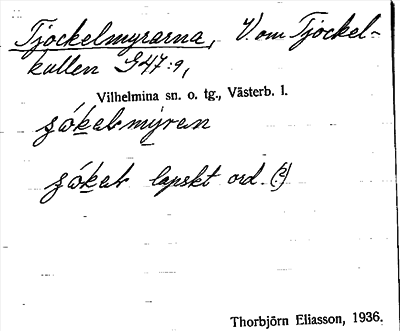 Tjockelmyrarna, V. om Tjockel-
kullen G47:9,
Vilhelmina sn. o. tg., Västerb. l.
lapskt ord. (?)
Thorbjörn Eliasson, 1936.